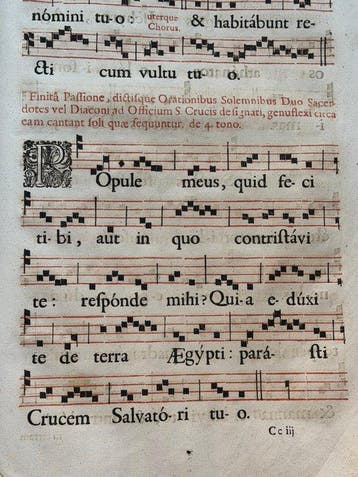 nómini tu-o: uterque Chorus. & habitábunt re-
cti cum vultu tu- o.
Finitâ Passione, dictisque Orationibus Solemnibus Duo Sacer-
dotes vel Diaconi ad Officium S. Crucis designati, genuflexi circa
eam cantant soli quæ sequuntur. de 4. tono.
POpule meus, quid fe-ci
ti-bi, aut in quo contristávi
te: respónde mihi? Qui-a e-dúxi
te de terra Ægýpti: pará- sti
Crucem Salvató-ri tu-o.
Cc iij